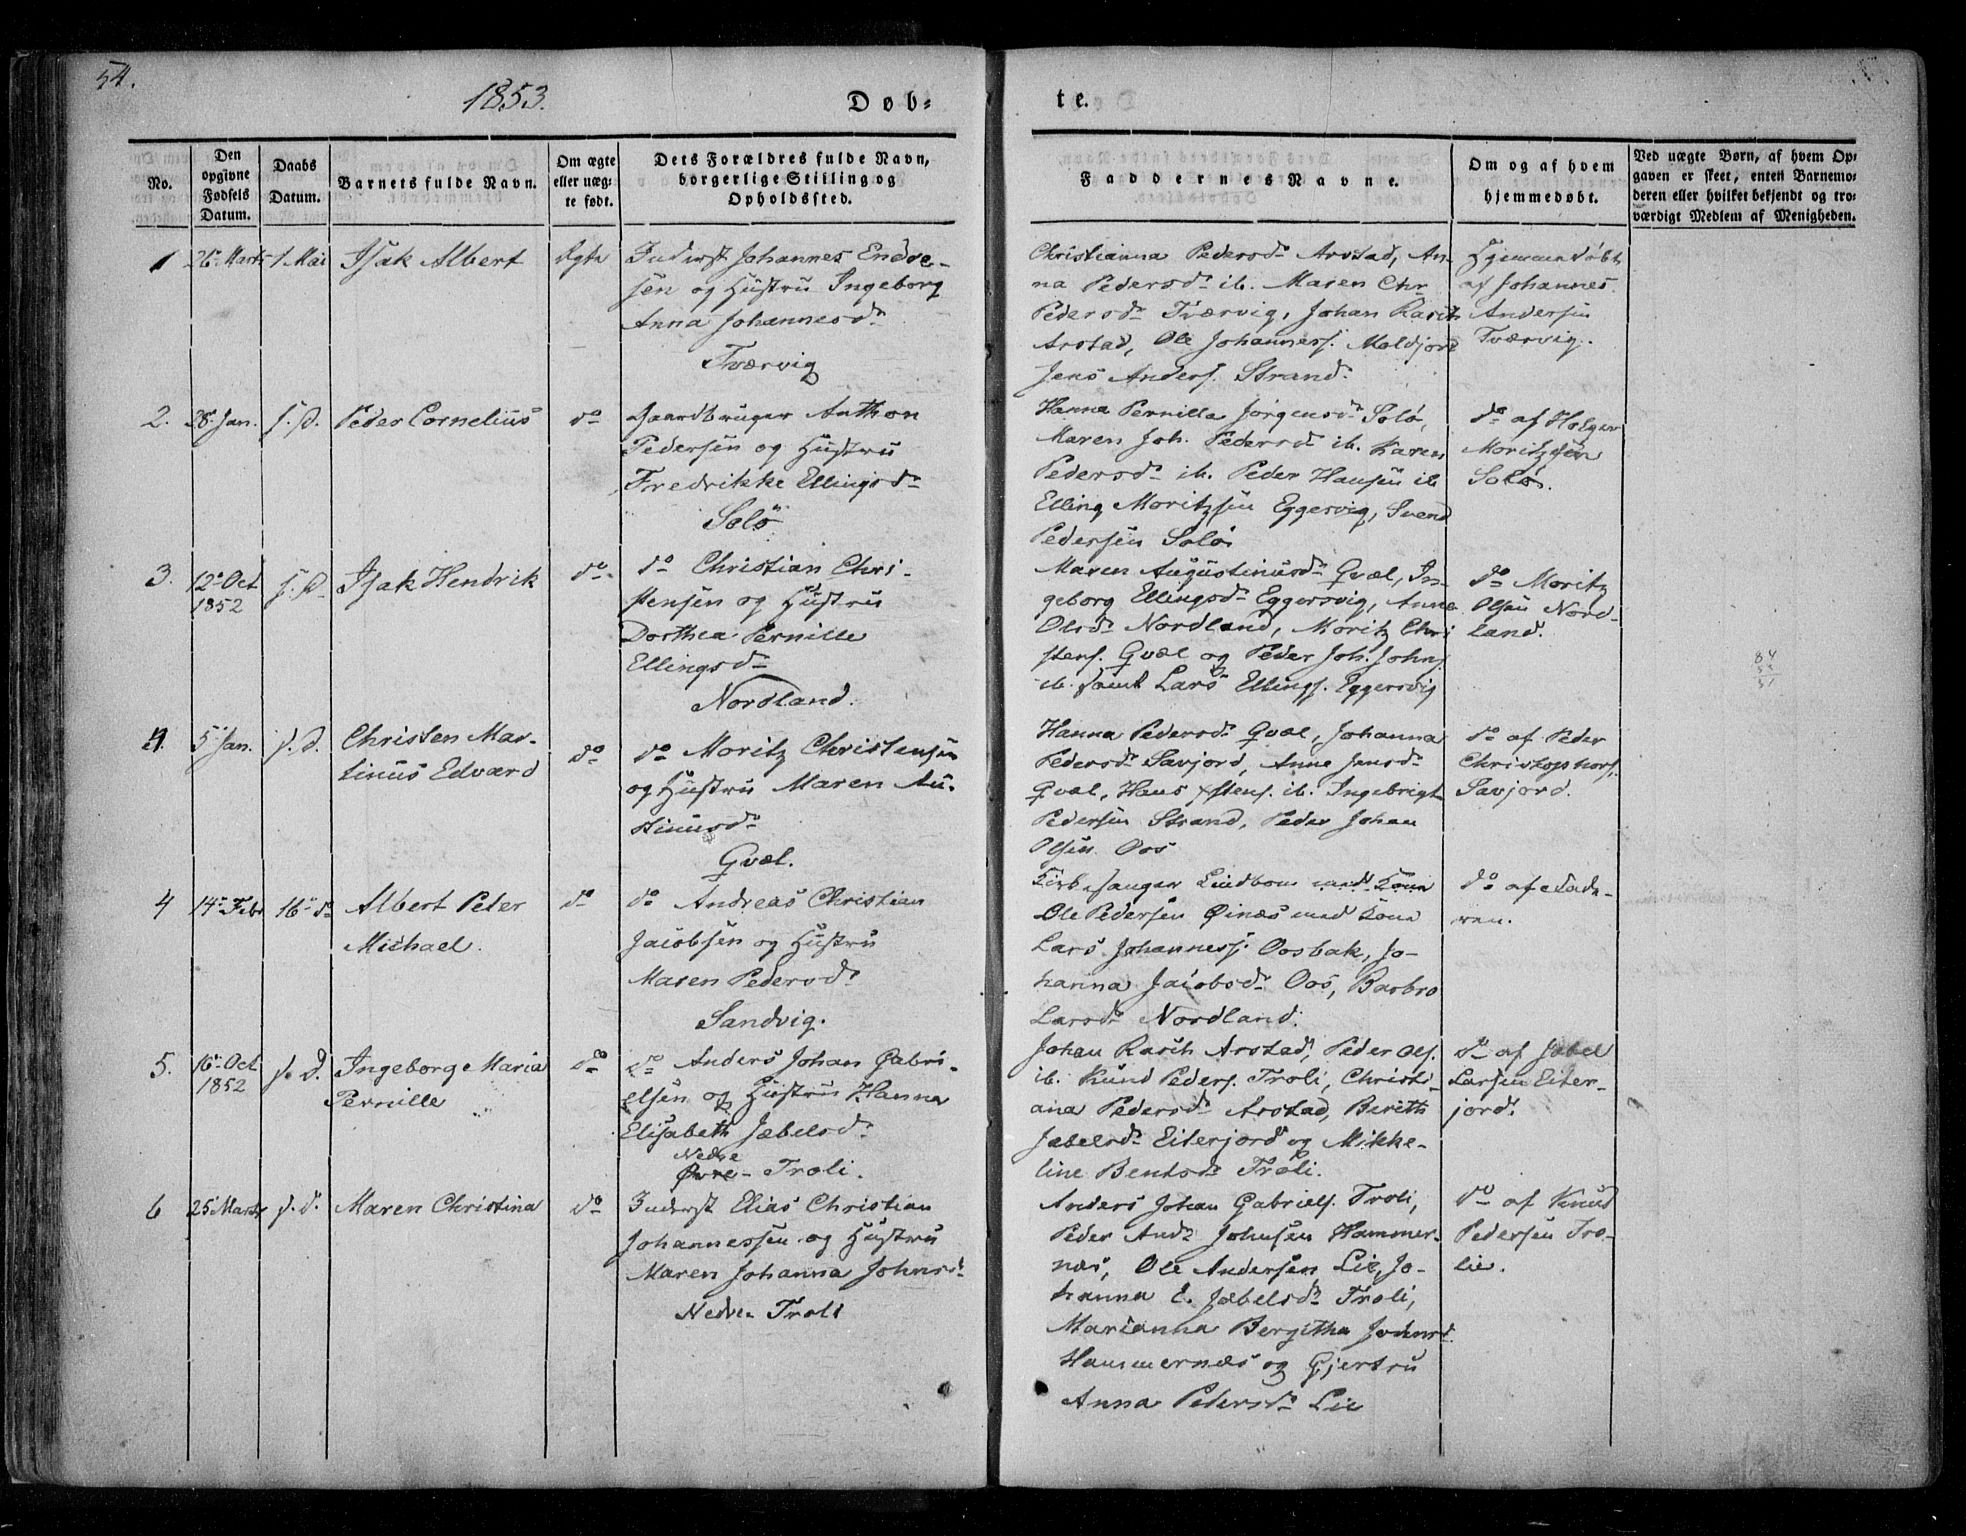 54.
1853.
Døb-
te.
No.
Den
opgivne
Fødsels
Datum.
Daabs
Datum.
Barnets fulde Navn.
Om ægte
eller uæg-
te født.
Dets Forældres fulde Navn,
borgerlige Stilling og
Opholdssted.
Faddernes Navne.
Om og af hvem
hjemmedøbt.
Ved uægte Børn, af hvem Op-
gaven er skeet, enten Barnemo-
deren eller hvilket bekjendt og tro-
værdigt Medlem af Menigheden.
1
26. Marts
1 Mai
Isak Albert
Ægte
Inderst Johannes Endre-
sen og Hustru Ingeborg
Anna Johannesd.
Tværvig
Christianna Pedersd. Arstad, An-
na Pedersd. ib. Maren Chr
Pedersd. Tværvig, Johan Rasch
Arstad, Ole Johanness. Moldjord
Jens Anders. Strand.
Hjemmedøbt
af Johannes
Andersen
Tværvig.
2.
28. Jan.
s. D.
Peder Cornelius
do
Gaardbruger Anthon
Pedersen og Hustru
Fredrikke Ellingsd.
Solø
Hanna Pernilla Jørgensd. Solø,
Maren Joh. Pedersd. ib. Karen
Pedersd. ib. Peder Hansen ib
Elling Moritzsen Eggesvig, Svend
Pedersen Solø.
do af Holger
Moritzsen
Solø.
3.
12. Oct
1852
s. D.
Isak Hendrik
do
do Christian Chri-
stensen og Hustru
Dorthea Pernille
Ellingsd.
Nordland.
Maren Augustinusd. Gvæl, In-
geborg Ellingsd. Eggesvig, Anne
Olsd. Nordland, Moritz Chri
stens. Gvæl og Peder Joh. Johns.
ib. samt Lars Ellings. Eggesvig
do Moritz
Olsen Nord-
land.
4.
5 Jan.
s. D.
Christen Mar-
tinus Edvard
do
do Moritz Christensen
og Hustru Maren Au-
stinusd.
Gvæl.
Hanna Pedersd. Gvæl, Johanna
Pedersd. Savjord, Anne Jensd.
Gvæl, Hans Xstens. ib. Ingebrigt
Pedersen Strand, Peder Johan
Olsen Oos
do af Peder
Christophers.
Savjord.
4
14. Febr
16. do
Albert Peter
Michael.
do
do Andreas Christian
Jacobsen og Hustru
Maren Pedersd.
Sandvig.
Kirkesanger Lindbom med Kone
Ole Pedersen Øinæs med Kone
Lars Johanness. Oosbak, Jo-
hanna Jacobsd. Oos, Barbro
Larsd. Nordland.
do af
5.
16. Oct
1852
s. D.
Ingeborg Maria
Pernille
do
do Anders Johan Gabri-
elsen og Hustru Hanna
Elisabeth Jæbelsd.
Nedre
Øvre - Troli.
Johan Rasch Arstad, Peder Ols.
ib. Knud Peders. Troli, Christi-
ana Pedersd. Arstad, Berith
Jæbelsd. Eiterjord og Mikke-
line Bentsd. Troli.
do af Jæbel
Larsen Eiter-
jord.
6
25 Marts
s. d.
Maren Christina
do
Inderst Elias Christian
Johannessen og Hustru
Maren Johanna Johnsd.
Nedre Troli
Anders Johan Gabriels. Troli,
Peder And. Johnsen Hammer-
næs, Ole Andersen Lie, Jo-
hanna E. Jæbelsd. Troli,
Marianna Bergitha Johnsd.
Hammernæs og Gjertru
Anna Pedersd. Lie
do af Knud
Pedersen Tro-
lie.